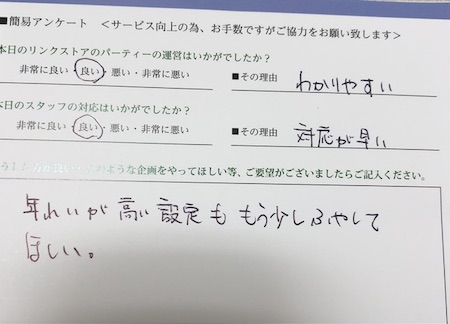 ■簡易アンケート　＜サービス向上の為、お手数ですがご協力をお願い致します＞
本日のリンクストアのパーティーの運営はいかがでしたか?
非常に良い・良い・悪い・非常に悪い　■その理由　わかりやすい
本日のスタッフの対応はいかがでしたか?
非常に良い・良い・悪い・非常に悪い　■その理由　対応が早い
のような企画をやってほしい等、ご要望がございましたらご記入ください。
年れいが高い設定ももう少しふやして
ほしい。